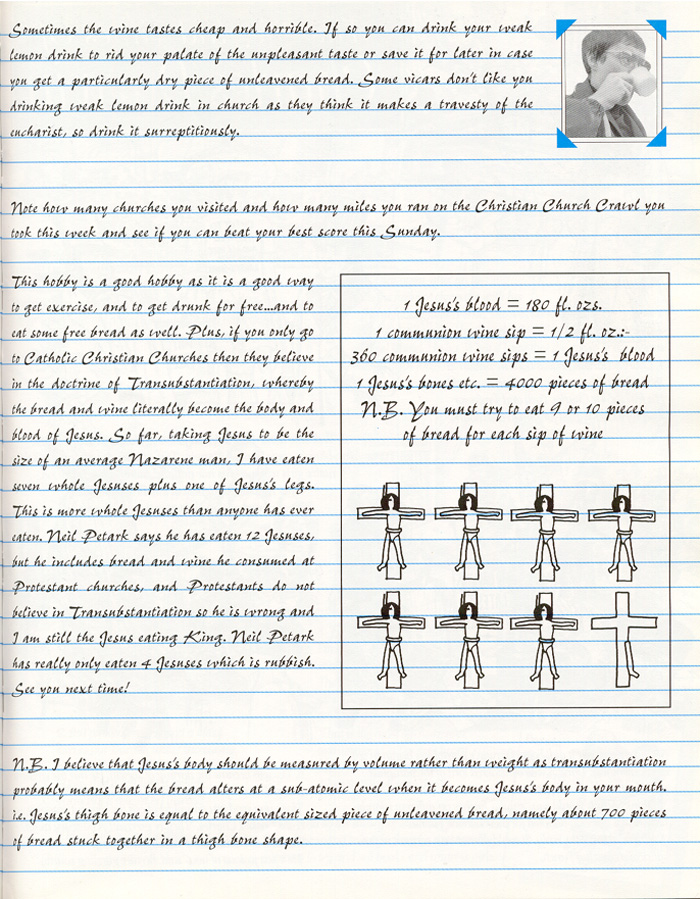 Sometimes the wine tastes cheap and horrible. If so you can drink your weak
lemon drink to rid your palate of the unpleasant taste or save it for later in case
you get a particularly dry piece of unleavened bread. Some vicars don't like you
drinking weak lemon drink in church as they think it makes a travesty of the
eucharist, so drink it surreptitiously.
Note how many churches you visited and how many miles you ran on the Christian Church Crawl you
took this week and see if you can beat your best score this Sunday.
This hobby is a good hobby as it is a good way
to get exercise, and to get drunk for free...and to
eat some free bread as well. Plus, if you only go
to Catholic Christian Churches then they believe
in the doctrine of Transubstantiation, whereby
the bread and wine literally become the body and
blood of Jesus. So far, taking Jesus to be the
size of an average Nazarene man, I have eaten
seven whole Jesuses plus one of Jesus's legs.
This is more whole Jesuses than anyone has ever
eaten. Neil Petark says he has eaten 12 Jesuses,
but he includes bread and wine he consumed at
Protestant churches, and Protestants do not
believe in Transubstantiation so he is wrong and
I am still the Jesus eating King. Neil Petark
has really only eaten 4 Jesuses which is rubbish.
See you next time!
1 Jesus's blood = 180 fl. ozs.
1 communion wine sip = 1/2 fl. oz.:-
360 communion wine sips = 1 Jesus's blood
1 Jesus's bones etc. = 4000 pieces of bread
N.B. You must try to eat 9 or 10 pieces
of bread for each sip of wine
N.B. I believe that Jesus's body should be measured by volume rather than weight as transubstantiation
probably means that the bread alters at a sub-atomic level when it becomes Jesus's body in your mouth.
i.e. Jesus's thigh bone is equal to the equivalent sized piece of unleavened bread, namely about 700 pieces
of bread stuck together in a thigh bone shape.